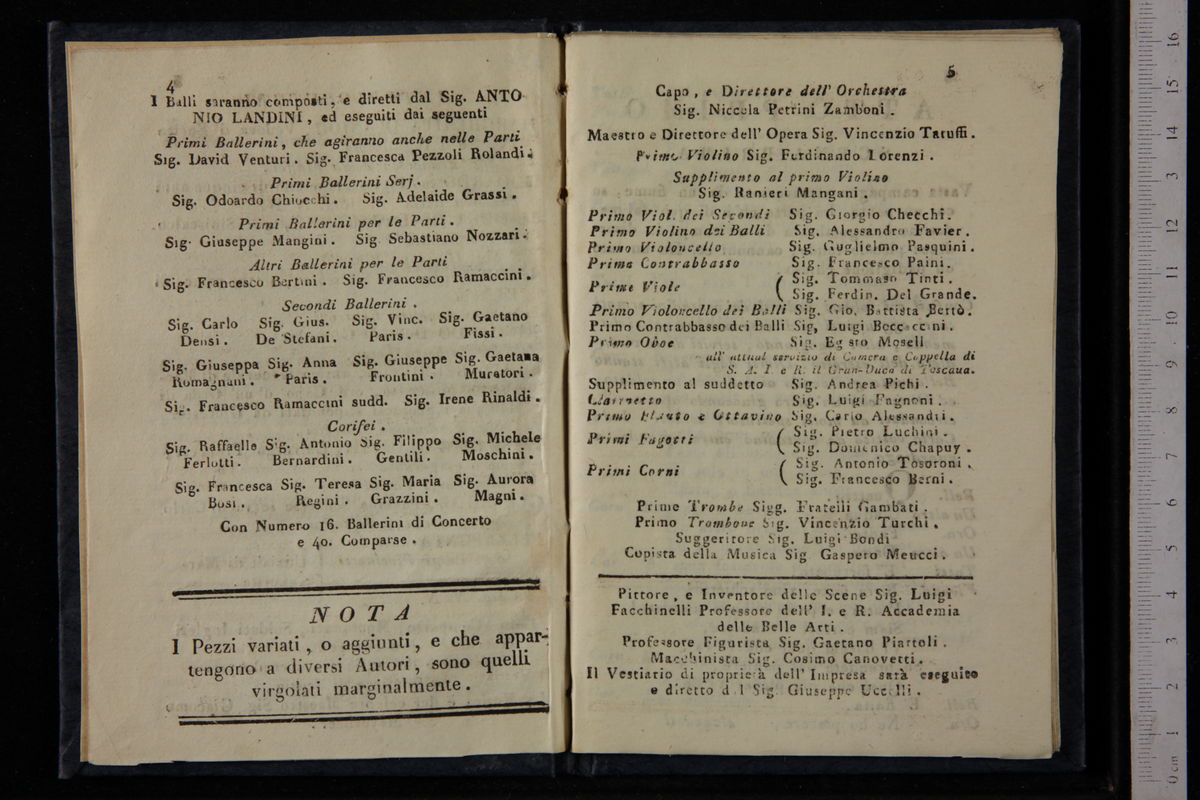 4
I Balli saranno composti, e diretti dal Sig. ANTO
NIO LANDINI, ed eseguiti dai seguenti
Primi Ballerini, che agiranno anche nelle Parti
Sig. David Venturi. Sig. Francesca Pezzoli Rolandi.
Primi Ballerini Serj.
Sig. Odoardo Chiocchi. Sig. Adelaide Grassi.
Primi Ballerini per le Parti.
Sig. Giuseppe Mangini. Sig. Sebastiano Nozzari.
Altri Ballerini per le Parti
Sig. Francesco Bertini. Sig. Francesco Ramaccini.
Secondi Ballerini.
Sig. Carlo Sig. Gius. Sig. Vinc. Sig. Gaetano
Densi. De Stefani. Paris. Fissi.
Sig. Giuseppa Sig. Anna Sig. Giuseppe Sig. Gaetana
Romagnani. Paris. Frontini. Muratori.
Sig. Francesco Ramaccini sudd. Sig. Irene Rinaldi.
Corifei.
Sig. Raffaelle Sig. Antonio Sig. Filippo Sig. Michele
Ferlotti. Bernardini. Gentili. Moschini.
Sig. Francesca Sig. Teresa Sig. Maria Sig. Aurora
Bosi. Regini. Grazzini. Magni.
Con Numero 16. Ballerini di Concerto
e 40. Comparse.
NOTA
I Pezzi variati, o aggiunti, e che appar-
tengono a diversi Autori, sono quelli
virgolati marginalmente.
5
Capo, e Direttore dell' Orchestra
Sig. Niccola Petrini Zamboni.
Maestro e Direttore dell' Opera Sig. Vincenzio Tatuffi.
Primo Violino Sig. Ferdinando Lorenzi.
Supplimento al primo Violino
Sig. Ranieri Mangani.
Primo Viol. dei Secondi Sig. Giorgio Checchi.
Primo Violino dei Balli Sig. Alessandro Favier.
Primo Violoncello Sig. Guglielmo Pasquini.
Primo Contrabbasso Sig. Francesco Paini.
Prime Viole ( Sig. Tommaso Tinti.
( Sig. Ferdin. Del Grande.
Primo Violoncello dei Balli Sig. Gio. Battista Bertò.
Primo Contrabbasso dei Balli Sig, Luigi Boccaccini.
Primo Oboe Sig. Egisto Moseli
all' attual servizio di Camera e Cappella di
S. A. I. e R. il Gran-Duca di Toscana.
Supplimento al suddetto Sig. Andrea Pichi.
Clarinetto Sig. Luigi Fagnoni.
Primo Flauto e Ottavino Sig. Carlo Alessandri.
Primi Fagotti ( Sig. Pietro Luchini.
( Sig. Domenico Chapuy.
Primi Corni ( Sig. Antonio Tosoroni.
( Sig. Francesco Berni.
Prime Trombe Sigg. Fratelli Gambati.
Primo Trombone Sig. Vincenzio Turchi.
Suggeritore Sig. Luigi Bondi
Copista della Musica Sig Gaspero Meucci.
Pittore, e Inventore delle Scene Sig. Luigi
Facchinelli Professore dell' I. e R. Accademia
delle Belle Arti.
Professore Figurista Sig. Gaetano Piattoli.
Macchinista Sig. Cosimo Canovetti.
Il Vestiario di proprietà dell' Impresa sarà eseguito
e diretto dal Sig. Giuseppe Uccelli.
0 cm 1 2 3 4 5 6 7 8 9 10 11 12 13 14 15 16